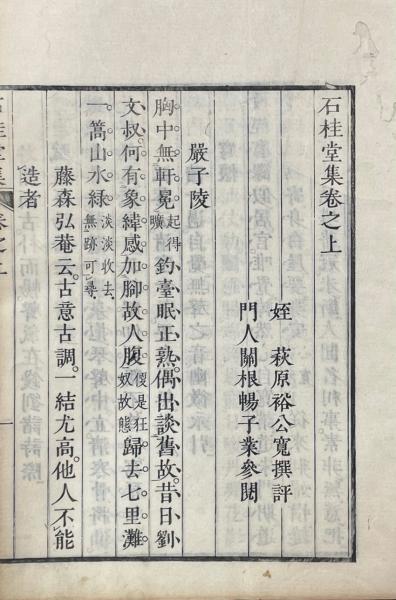 石桂堂集卷之上
姪 萩原裕公寬撰評
門人關根暢子業參閱
嚴子陵
胸中無軒冕起得曠釣臺眠正熟偶出談舊故昔日劉
文叔何有象緯感加腳故人腹便是狂奴故態歸去七里灘
一篙山水綠淡淡收去無跡可尋
藤森弘菴云古意古調一結尤高他人不能
造者
石桂堂集 卷之上 一